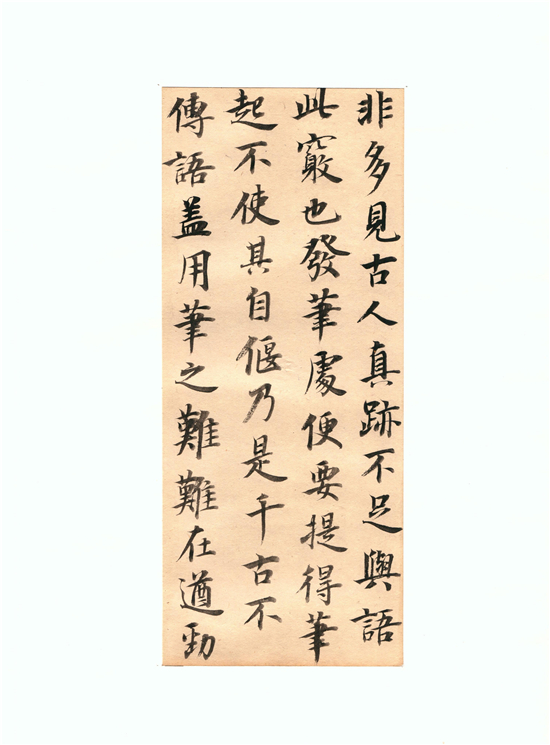 非多見古人真跡不足與語
此竅也發筆處便要提得筆
起不使其自偃乃是千古不
傳語盖用筆之難難在遒勁